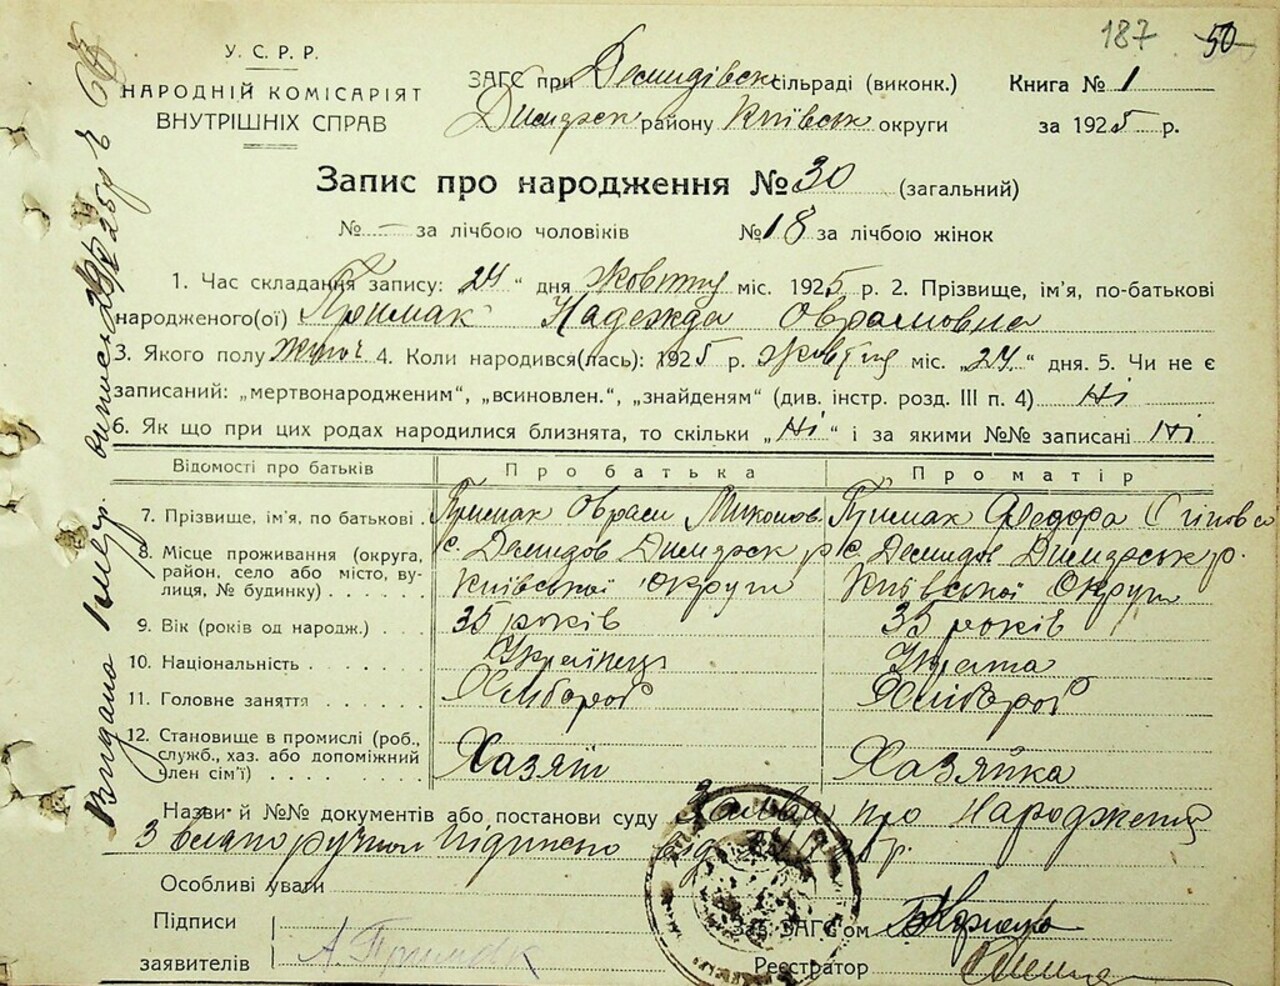 187 50
У. С. Р. Р.
НАРОДНІЙ КОМІСАРІЯТ
ВНУТРІШНІХ СПРАВ
ЗАГС при Демидівськ сільраді (виконк.)
Димерск району Київськ округи
Книга № 1
за 1925 р.
Запис про народження № 30 (загальний)
№ — за лічбою чоловіків № 18 за лічбою жінок
1. Час складання запису: „24“ дня жовтня міс. 1925 р. 2. Прізвище, ім'я, по-батькові
народженого(ої) Примак Надежда Оврамовна
3. Якого полу жіноч 4. Коли народився(лась): 1925 р. жовтня міс. „24“ дня. 5. Чи не є
записаний: „мертвонародженим“, „всиновлен.“, „знайденям“ (див. інстр. розд. III п. 4) Ні
6. Як що при цих родах народилися близнята, то скільки „Ні“ і за якими №№ записані Ні
Відомості про батьків Про батька Про матір
7. Прізвище, ім'я, по батькові . Примак Оврам Миконов. Примак Федора
8. Місце проживання (округа, с. Демидов Димерск р с. Демидов Димерськ р.
район, село або місто, ву- Київської Округи Київської Округи
лиця, № будинку) . . . . . .
9. Вік (років од народж.) . . . 35 років 35 років
10. Національність . . . . . . Українець Украінка
11. Головне заняття . . . . . Хлібороб Хлібороб
12. Становище в промислі (роб.,
служб., хаз. або допоміжний Хазяїн Хазяйка
член сім'ї) . . . . . . . .
Назви й №№ документів або постанови суду Заява про Народження
З власноручним підписью від 24/X 25 р.
Особливі уваги
Підписи
заявителів А. Примак
Зав. ЗАГС'ом
Реєстратор
Видано 1 випись